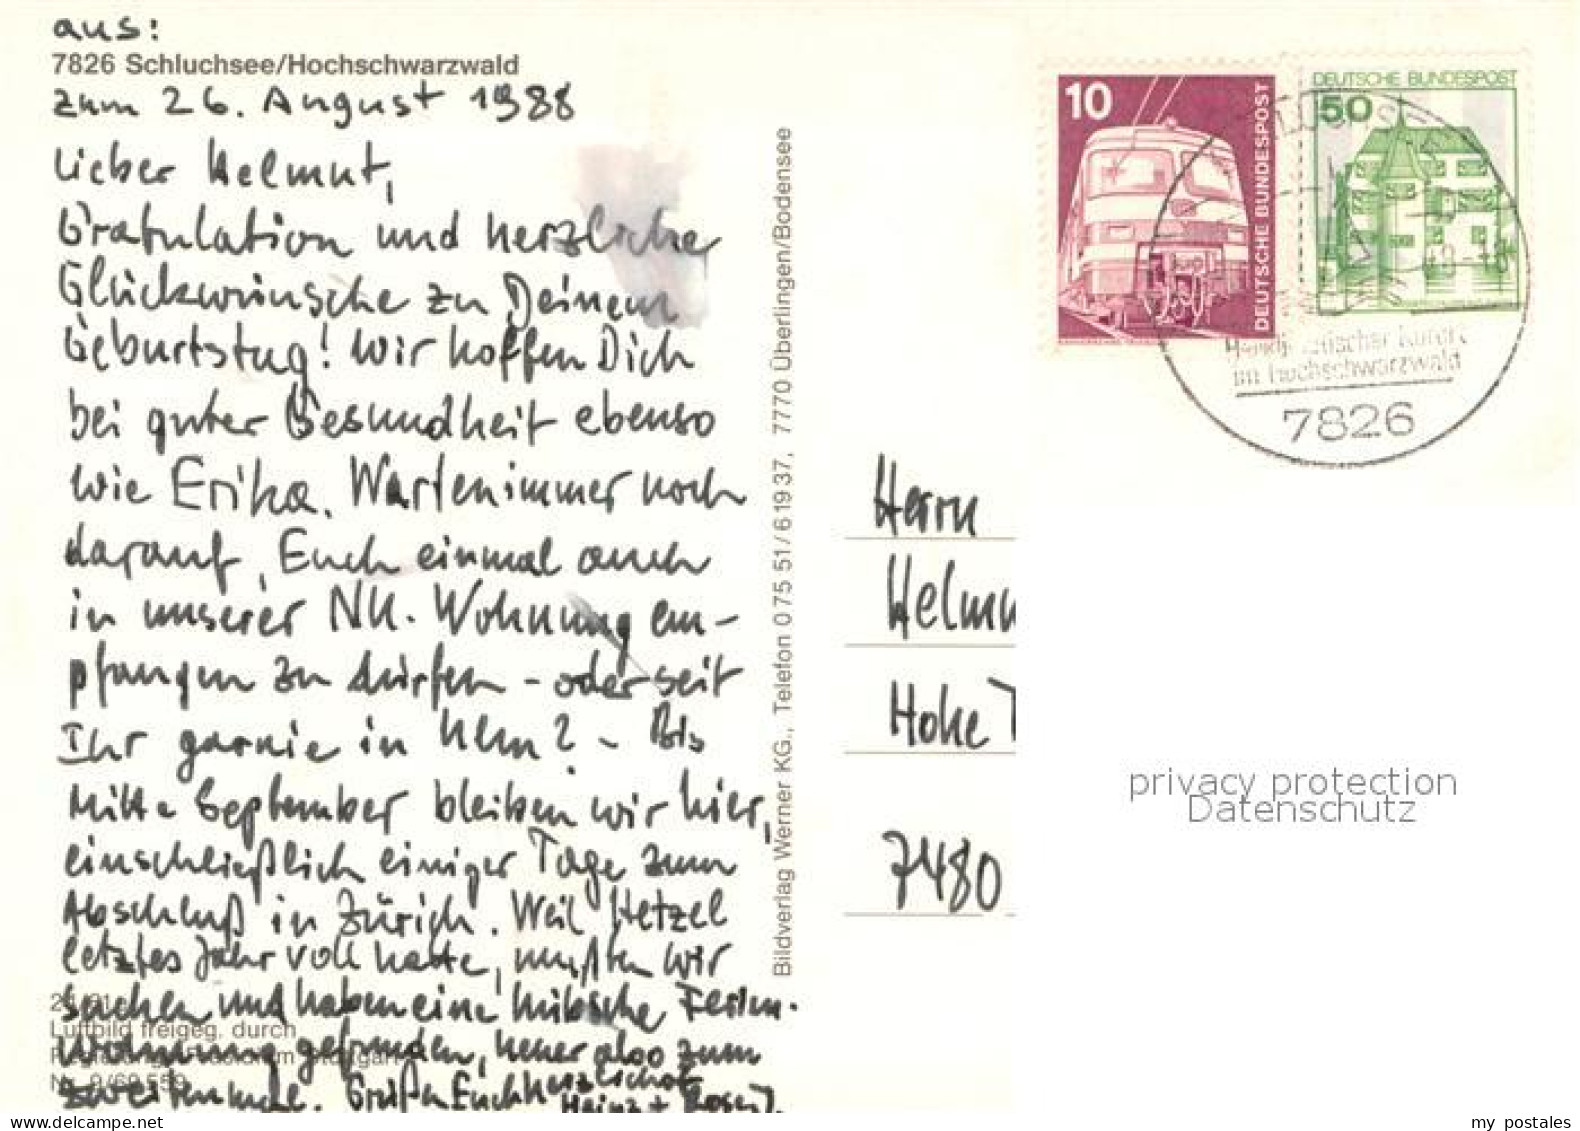 aus:
7826 Schluchsee/Hochschwarzwald
zum 26. August 1988
Lieber Helmut,
Gratulation und herzliche
Glückwünsche zu Deinem
Geburtstag! Wir hoffen Dich
bei guter Gesundheit ebenso
wie Erika. Warten immer noch
darauf, Euch einmal auch
in unserer NK. Wohnung em-
pfangen zu dürfen - oder seit
Ihr garnie in Nkn? - Bis
Mitte September bleiben wir hier,
einschließlich einiger Tage zum
Abschluß in Zürich. Weil Hetzel
letztes Jahr voll hatte, mußten wir
suchen und haben eine hübsche Ferien-
Wohnung gefunden, heuer also zum
zweitenmal. Grüßen Euch herzlichst
Heinz +
Luftbild freigeg. durch
Bildverlag Werner KG., Telefon 0 75 51 / 6 19 37, 7770 Überlingen/Bodensee
10
DEUTSCHE BUNDESPOST
DEUTSCHE BUNDESPOST
50
im Hochschwarzwald
7826
Herrn
Helmu
Hohe
7480
privacy protection
Datenschutz
my postales